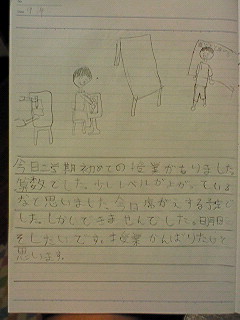 今日二学期初めての授業がありました。
算数でした。少しレベルが上がってるな
なと思いました。今日席がえする予定で
した。しかしできませんでした。明日
そしたいです。授業がんばりたいと
思います。